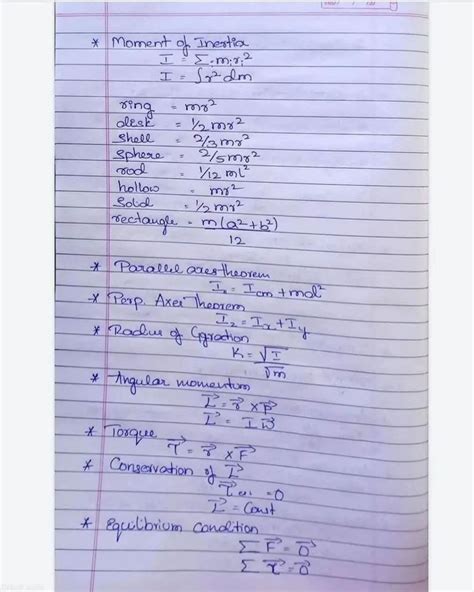 * Moment of Inertia
I = Σ miri²
I = ∫r²dm
ring = mr²
desk = 1/2 mr²
Shell = 2/3 mr²
Sphere = 2/5 mr²
rod = 1/12 ml²
hollow = mr²
Solid = 1/2 mr²
rectangle = m(a²+b²)
12
* Parallel axes theorem
I = Icm + md²
* Perp. Axes Theorem
Iz = Ix + Iy
* Radius of Gyration
K = √I
√m
* Angular momentum
L⃗ = r⃗ × P⃗
L⃗ = I ω⃗
* Torque
τ⃗ = r⃗ × F⃗
* Conservation of L⃗
τ⃗ext = 0
L⃗ = Const
* Equilibrium Condition
Σ F⃗ = 0⃗
Σ τ⃗ = 0⃗